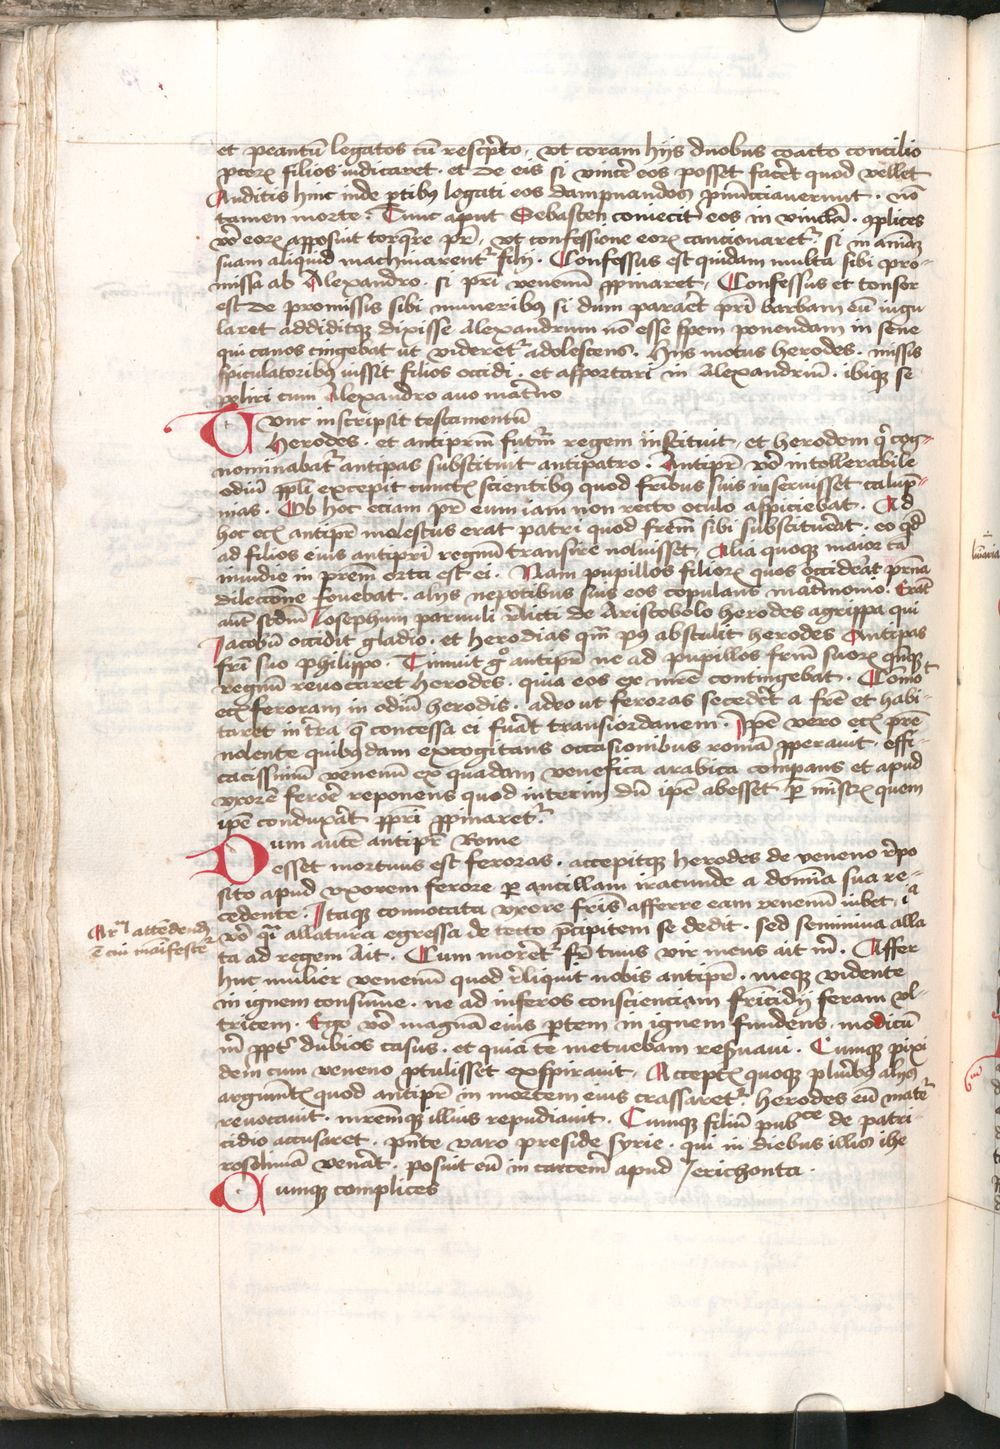 et peantū legatos cū rescp̄to · vt coram hijs duobus coacto concilio
pctorꝝ filios iudicaret · et de eis si vincē eos posset facēt quod vellet
Auditis hinc inde ꝑtibꝯ legati eos dampnandos ꝓnūciaverunt · nō
tamen morte · Tunc aput Sebasten coniecit eos in vincla · ꝯplices
vo᷒ eorꝝ apposuit torq̄re pr̄ · vt confessione eorꝝ cautionaret᷑ si in aīaꝫ
suam aliquid machinarent᷑ filij · Confessus est quidam multa sibi pro-
missa ab Alexandro · si pr̄i venenū ꝓpinaret · Confessus et tonsor
est de promissis sibi muneribꝯ si dum pararet pr̄i barbam eū iugu
laret addiditqꝫ dixisse Alexandrum nō esse spem ponendam in sene
qui canos tingebat ut videret᷑ adolescens · Hijs motus herodes · missis
spiculatoribꝯ iussit filios occidi · et asportari in Alexandriū · ibiqꝫ se
peliri cum Alexandro auo mat̄no
Tunc inscripsit testamentū
Herodes · et antiprm̄ futm̄ regem instituit · et herodem qͥ cog-
nominabat᷑ antipas substituit antipatro · Antipr̄ vō intollerabile
odiū ppl̄i excepit cunctꝭ scientibꝯ quod fr̄ibus suis inseruisset calup-
nias · Ob hoc eciam pr̄ eum iam non recto oculo aspiciebat · Ad
hoc ecꝭ antipr̄ molestus erat patri quod fr̄em sibi substituerat · eo qd̓
ad filios eius antipr̄i regnū transire noluisset · Alia quoqꝫ maior cā
inuidie in pr̄em orta est ei · Nam pupillos filiorꝝ quos occiderat pr̄na
dilectione fouebat · alijs nepotibus suis eos copulans mat̄monio · Erāt
aūt scd̄m Iosephum paruuli r̄licti de Aristobolo herodes agrippa qui
Iacobū occidit gladio · et herodias qm̄ pꝰ abstulit herodes Antipas
fr̄i suo philippo · Timuit gͦ antipr̄ ne ad pupillos fr̄m suorꝝ qn̄qꝫ
regnū reuocaret herodes · quia eos ex iure contingebat · Cōmoᵗ
ecꝭ feroram in odiū herodis · adeo ut feroras secedēt a fr̄e et habi-
taret in t̄ra q̄ concessa ei fuāt transiordanem · Ip̄e vero ecꝭ pr̄e
nolente quibꝯdam excogitans occasionibus romā ꝓperauit · effi-
cacissimū venenū ex quadam venefica arabica compans et apud
vxorē feroē reponens quod interim dū ip̄e abesset ꝑ m̄istꝝ quem
ip̄e conduxāt pr̄i ꝓpinaret᷑
Dum autē antipr̄ Rome
esset mortuus est feroras · accepitqꝫ herodes de veneno r̄po
sito apud vxorem ferore ꝑ ancillam iracunde a domīa sua re-
cedente · Itaqꝫ conuocata vxore fr̄is afferre eam venenū iubet · iᵃ
vō qͣi allatura egressa de tecto p̄cipitem se dedit · sed seminiua alla
ta ad regem Ait · Cum morēt᷑ fr̄ tuus vir meus ait m̄ · Affer
huc mulier venenū quod r̄liquit nobis antipr̄ · meqꝫ vidente
in ignem consume · ne ad inferos conscienciam fr̄icidij feram vl-
tricem · Ego vō magnā eius ꝑtem in ignem fundens · modicū
m̄ ꝓpt̓ dubios casus · et quia te metuebam res̓uaui · Cumqꝫ pixi
dem cum veneno ꝓtulisset exspirauit · Acceptꝭ quoqꝫ plurībꝯ alijs
argumt̄ꝭ quod antipr̄ in mortem eius crassaret᷑ · herodes eū mat᷑
reuocauit · mr̄emqꝫ illius repudiauit · Cumqꝫ filiū pubᶜᵉ de patri
cidio accusaret · pn̄te varo preside syrie · qui in diebus illis ihe
rosolimā venāt · posuit eū in carcerē apud Ierichonta ·
Cumqꝫ complices
Ar᷑ᵐ attēdendꝫ
ē cui māifestet᷑